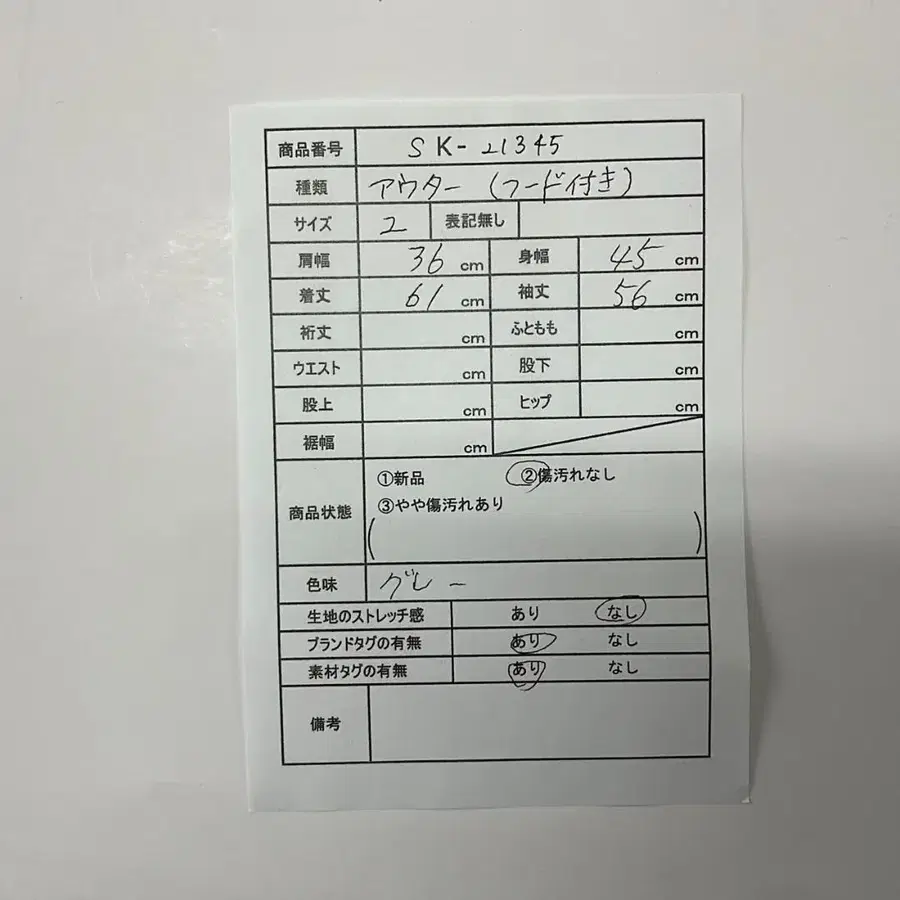 商品番号 SK-21345
種類 アウター (フード付き)
サイズ 2 表記無し
肩幅 36 cm 身幅 45 cm
着丈 61 cm 袖丈 56 cm
裄丈 cm ふともも cm
ウエスト cm 股下 cm
股上 cm ヒップ cm
裾幅 cm
商品状態 ①新品 ②傷汚れなし
③やや傷汚れあり
( )
色味 グレー
生地のストレッチ感 あり なし
ブランドタグの有無 あり なし
素材タグの有無 あり なし
備考